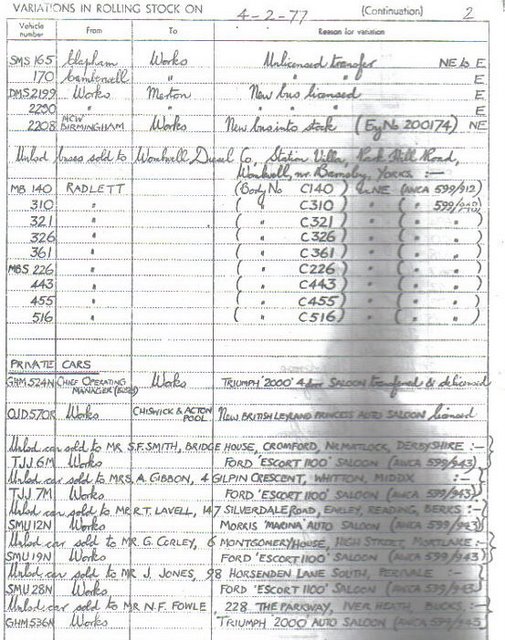 VARIATIONS IN ROLLING STOCK ON 4-2-77 (Continuation) 2
Vehicle number From To Reason for variation
SMS 165 Clapham Works Unlicensed transfer NE to E
170 Camberwell " " " E
DMS 2199 Works Merton New bus licensed E
2230 " " " " " E
2208 MCW BIRMINGHAM Works New bus into stock (Eng No 200174) NE
Unlsd buses sold to Wombwell Diesel Co, Station Villa, Park Hill Road,
Wombwell, nr. Barnsley, YORKS. :—
MB 140 RADLETT (Body No C140) UNE (AWCA 599/912)
310 " ( " C310 ) " ( " 599/
321 " ( " C321 ) " ( " " )
326 " ( " C326 ) " ( " " )
361 " ( " C361 ) " ( " " )
MBS 226 " ( " C226 ) " ( " " )
443 " ( " C443 ) " ( " " )
455 " ( " C455 ) " ( " " )
516 " ( " C516 ) " ( " " )
PRIVATE CARS
GHM 524N CHIEF OPERATING MANAGER (BUSES) Works TRIUMPH '2000' 4 door SALOON transferred & delicensed
OJD 570R Works CHISWICK & ACTON POOL New BRITISH LEYLAND PRINCESS AUTO SALOON licensed
Unlsd car sold to MR S.F. SMITH, BRIDGE HOUSE, CROMFORD, NR MATLOCK, DERBYSHIRE :—
TJJ 6M Works FORD 'ESCORT 1100' SALOON (AWCA 599/943)
Unlsd car sold to MRS. A. GIBBON, 4 GILPIN CRESCENT, WHITTON, MIDDX :—
TJJ 7M Works FORD 'ESCORT 1100' SALOON (AWCA 599/943)
Unlsd car sold to MR R.T. LAVELL, 147 SILVERDALE ROAD, EARLEY, READING, BERKS :—
SMU 12N Works MORRIS 'MARINA' AUTO SALOON (AWCA 599/943)
Unlsd car sold to MR G. CORLEY, 6 MONTGOMERY HOUSE, HIGH STREET, MORTLAKE :—
SMU 19N Works FORD 'ESCORT 1100' SALOON (AWCA 599/943)
Unlsd car sold to MR J. JONES, 98 HORSENDEN LANE SOUTH, PERIVALE :—
SMU 28N Works FORD 'ESCORT 1100' SALOON (AWCA 599/943)
Unlsd car sold to MR N.F. FOWLE, 228 THE PARKWAY, IVER HEATH, BUCKS :—
GHM 536N Works TRIUMPH '2000' AUTO SALOON (AWCA 599/945)